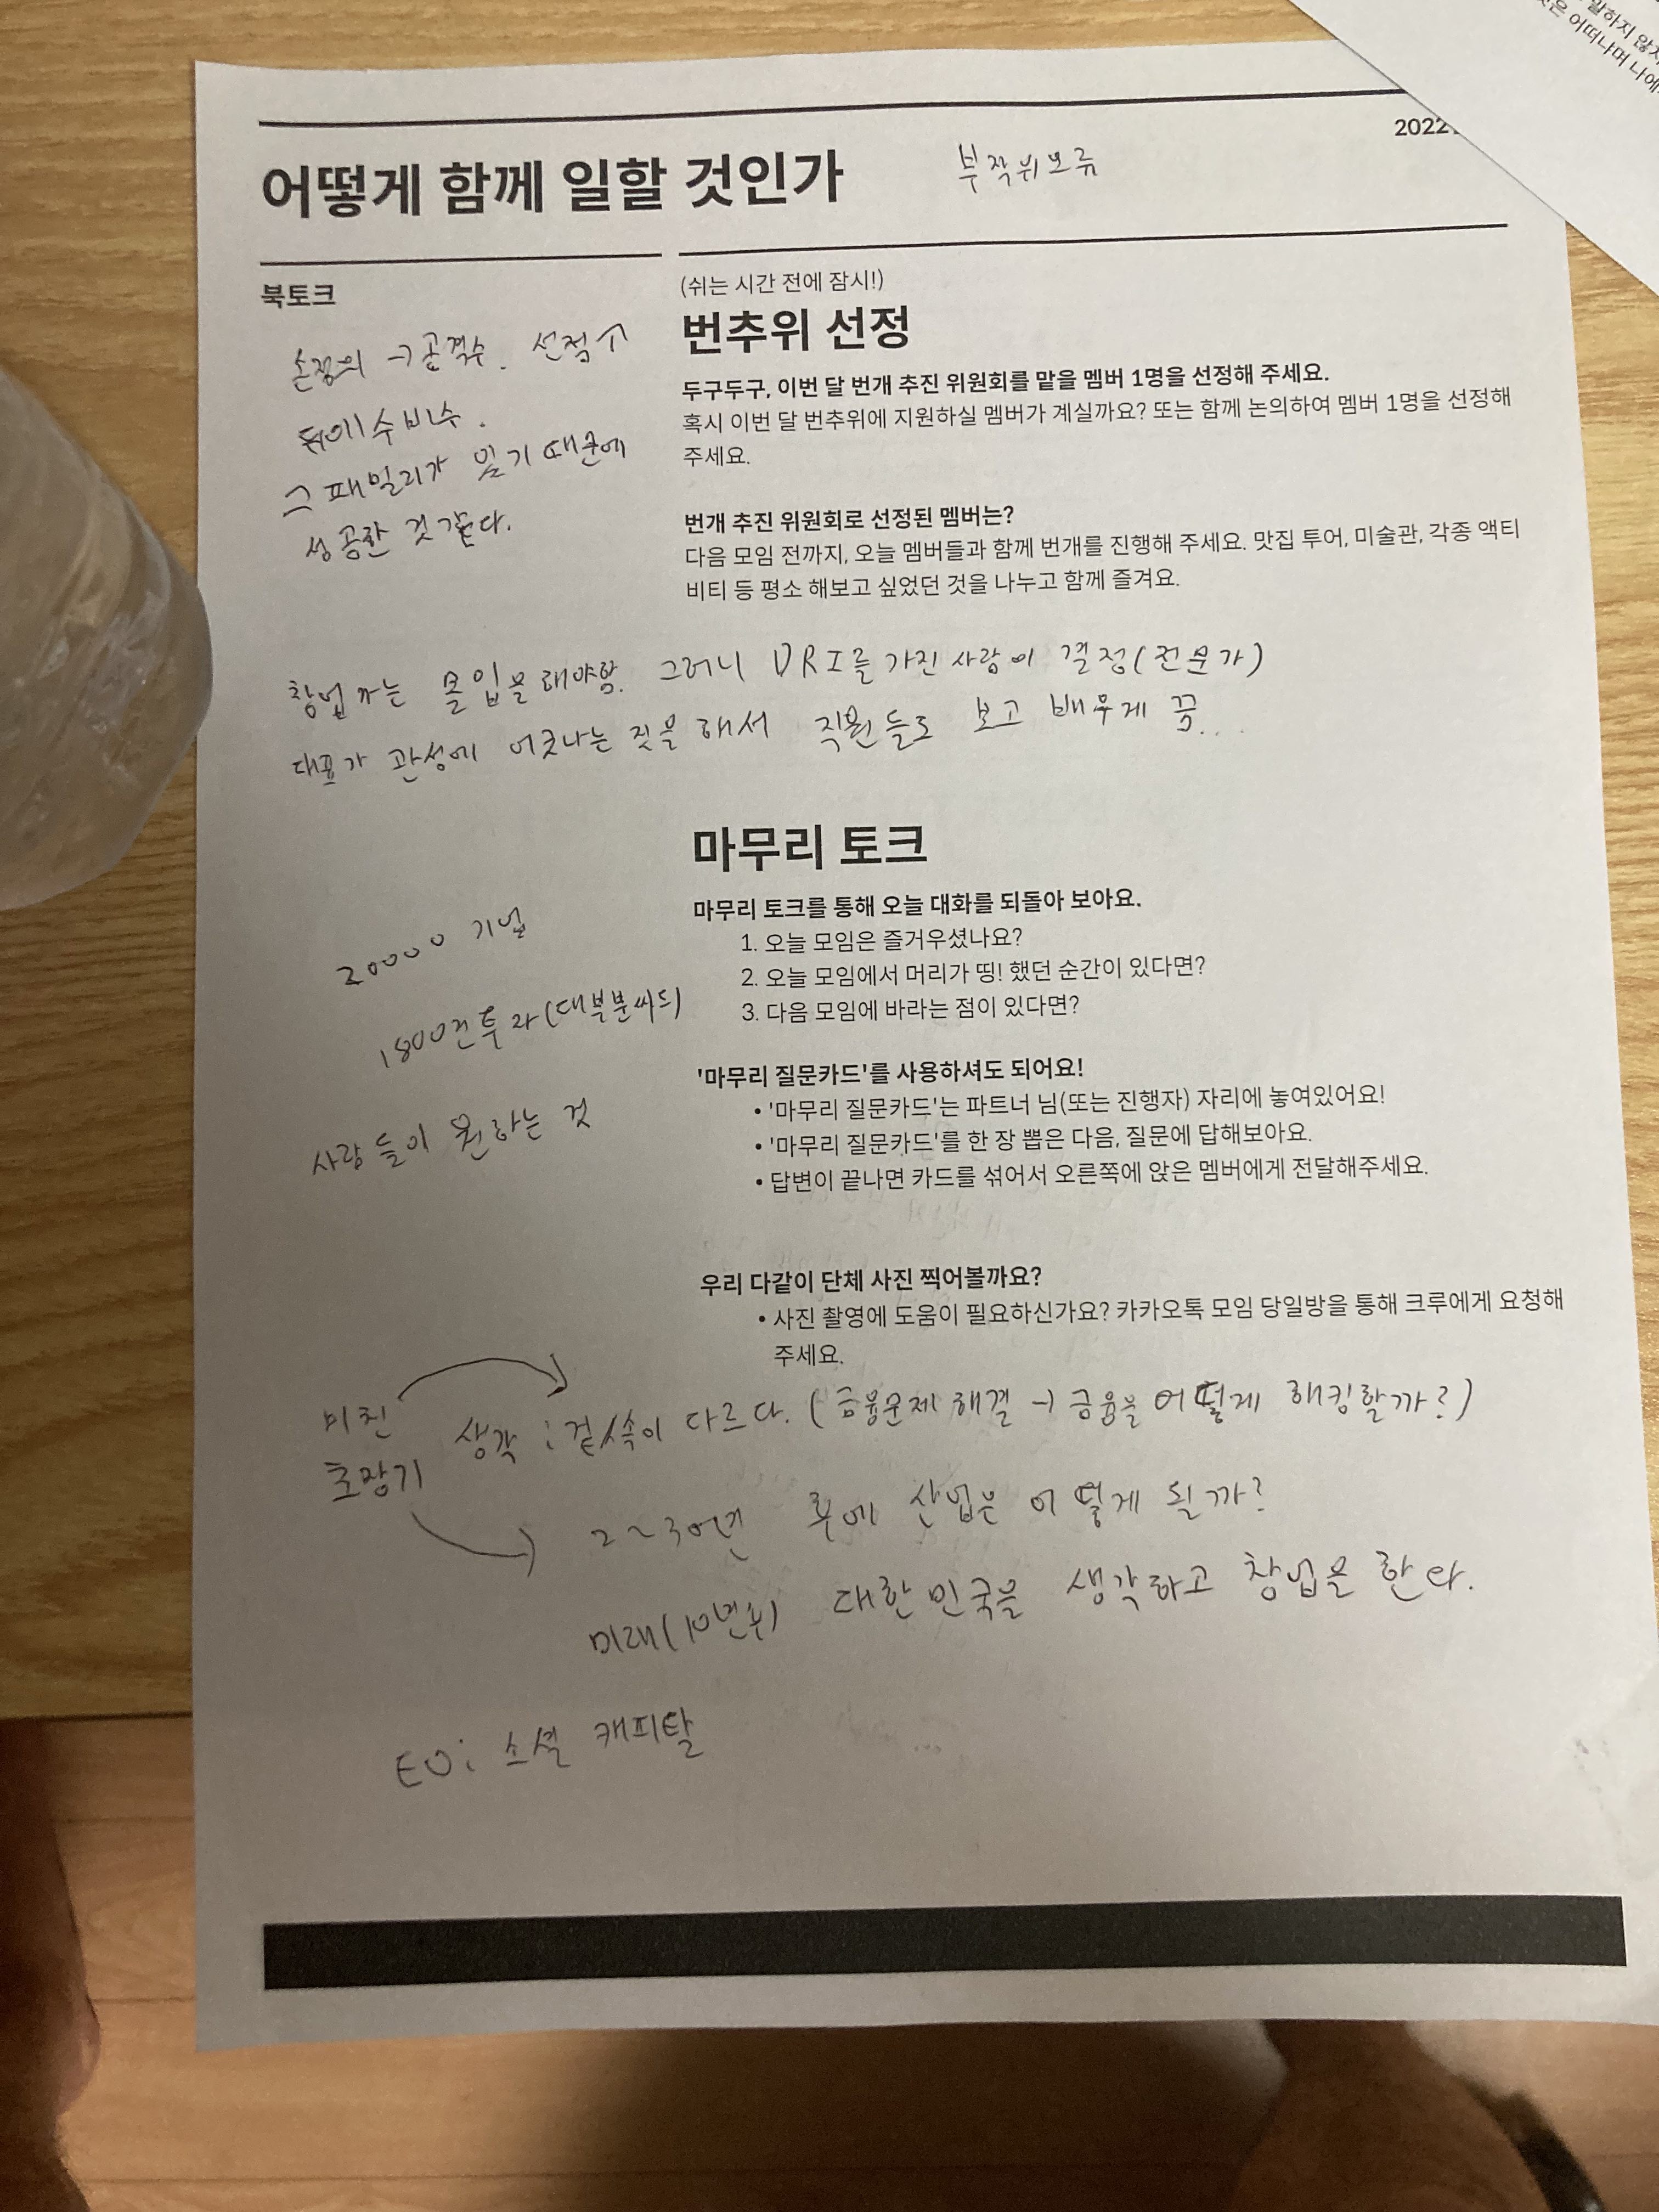 말하지 않
은 어떠냐며 나에
2022
어떻게 함께 일할 것인가
부작위오류
북토크
손정의 → 공격수. 선적
뒤에 수비수.
그 패밀리가 있기 때문에
성공한 것 같다.
(쉬는 시간 전에 잠시!)
번추위 선정
두구두구, 이번 달 번개 추진 위원회를 맡을 멤버 1명을 선정해 주세요.
혹시 이번 달 번추위에 지원하실 멤버가 계실까요? 또는 함께 논의하여 멤버 1명을 선정해
주세요.
번개 추진 위원회로 선정된 멤버는?
다음 모임 전까지, 오늘 멤버들과 함께 번개를 진행해 주세요. 맛집 투어, 미술관, 각종 액티
비티 등 평소 해보고 싶었던 것을 나누고 함께 즐겨요.
창업가는 몰입을 해야함. 그러니 DRI를 가진 사람이 결정(전문가)
대표가 관성에 어긋나는 짓을 해서 직원들도 보고 배우게 끔...
마무리 토크
마무리 토크를 통해 오늘 대화를 되돌아 보아요.
1. 오늘 모임은 즐거우셨나요?
2. 오늘 모임에서 머리가 띵! 했던 순간이 있다면?
3. 다음 모임에 바라는 점이 있다면?
20000 기업
1800건 투자(대부분 씨드)
사람들이 원하는 것
'마무리 질문카드'를 사용하셔도 되어요!
• '마무리 질문카드'는 파트너 님(또는 진행자) 자리에 놓여있어요!
• '마무리 질문카드'를 한 장 뽑은 다음, 질문에 답해보아요.
• 답변이 끝나면 카드를 섞어서 오른쪽에 앉은 멤버에게 전달해주세요.
우리 다같이 단체 사진 찍어볼까요?
• 사진 촬영에 도움이 필요하신가요? 카카오톡 모임 당일방을 통해 크루에게 요청해
주세요.
미친 생각 : 겉/속이 다르다. (금융문제 해결 → 금융을 어떻게 해킹할까?)
초장기
2~30년 후에 산업은 어떻게 될까?
미래(10년후) 대한민국을 생각하고 창업을 한다.
EO: 소셜 캐피탈